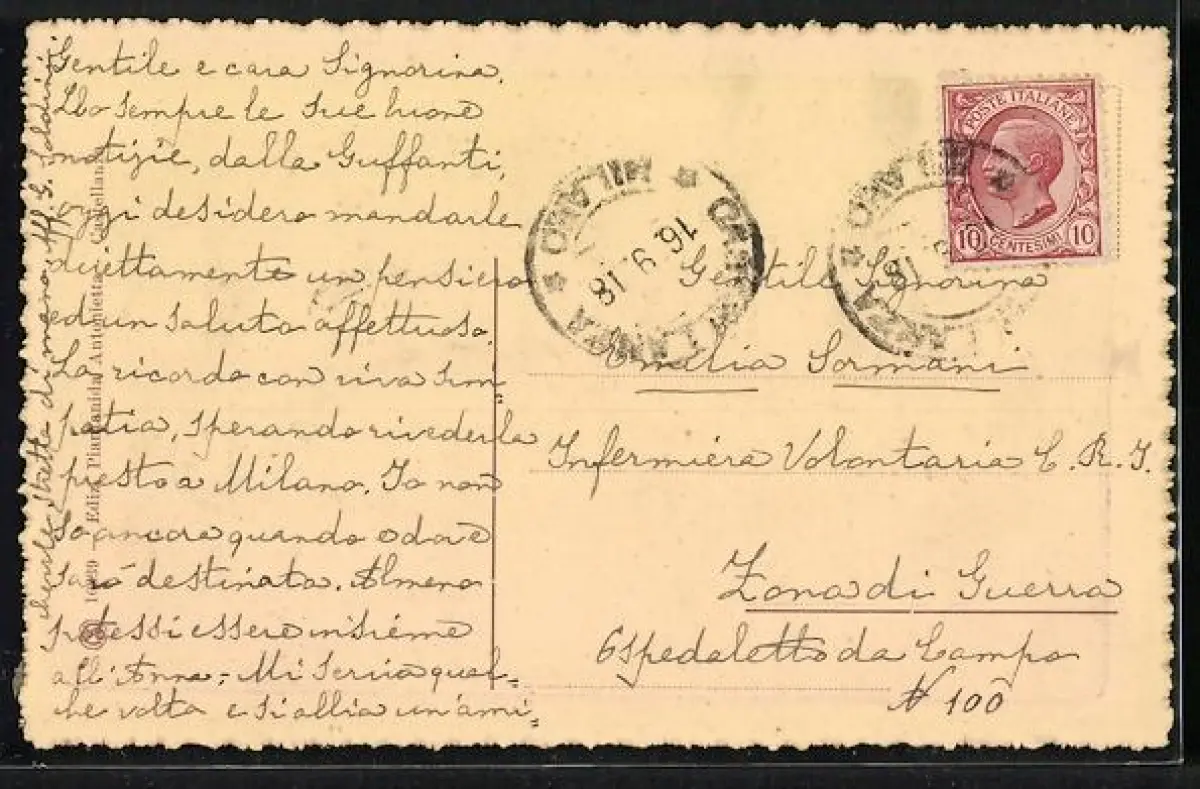 Gentile e cara Signorina.
Ho sempre le sue buone
notizie, dalla Guffanti,
oggi desidero mandarle
direttamente un pensiero
ed un saluto affettuoso.
La ricordo con viva sim=
patia, sperando rivederla
presto a Milano. Io non
so ancora quando e dove
sarò destinata. Almeno
potessi essere insieme
all'Anna = Mi scriva qual=
che volta e si abbia un'ami=
chevole stretta di mano
Ediz. Piantanida Antonietta, Castellanza
MILANO
CASTELLANZA
16.9.18
MILANO
18
POSTE ITALIANE
10 CENTESIMI 10
Gentile Signorina
Emilia Sormani
Infermiera Volontaria C.R.I.
Zona di Guerra
Ospedaletto da Campo
N 100